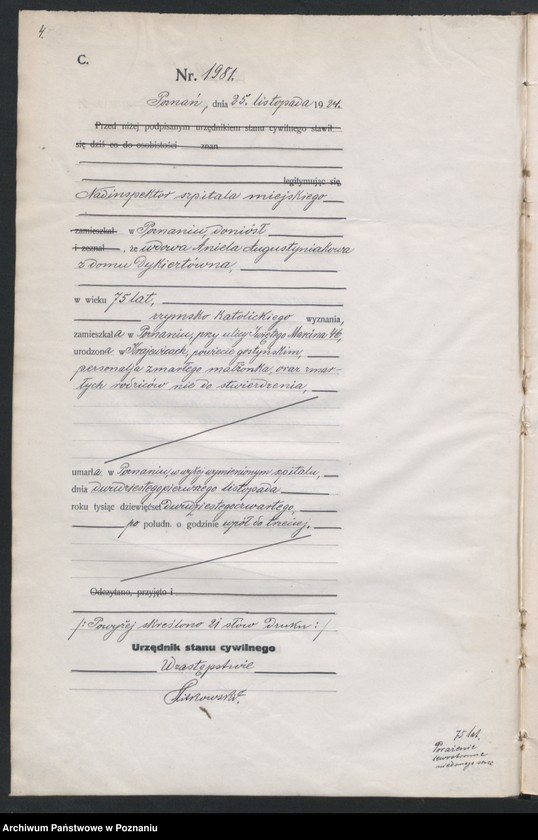 4.
C.
Nr. 1981.
Poznań, dnia 25. listopada 1924.
Przed niżej podpisanym urzędnikiem stanu cywilnego stawił
się dziś co do osobistości znan
legitymując się,
Nadinspektor szpitala miejskiego
zamieszkał w Poznaniu, doniósł
i zeznał, że wdowa Aniela Augustyniakowa
z domu Dykiertówna,
w wieku 75 lat,
rzymsko katolickiego wyznania,
zamieszkała w Poznaniu, przy ulicy Świętego Marcina 46,
urodzona w Krajewicach, powiecie gostyńskim,
personalja zmarłego małżonka, oraz zmar-
łych rodziców nie do stwierdzenia,
umarła w Poznaniu, w wyżej wymienionym szpitalu,
dnia dwudziestegopierwszego listopada
roku tysiąc dziewięćset dwudziestegoczwartego,
po połudn. o godzinie wpół do trzeciej.
Odczytano, przyjęto i
/: Powyżej skreślono 21 słów druku :/
Urzędnik stanu cywilnego
W zastępstwie
75 lat.
Porażenie
Archiwum Państwowe w Poznaniu